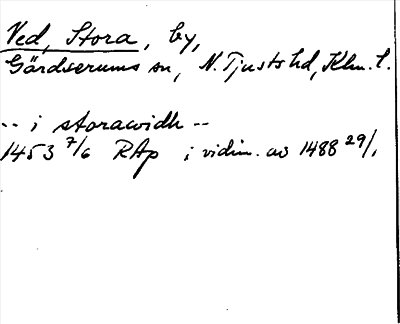 Ved, Stora, by,
Gärdserums sn, N. Tjusts hd, Klm. l.
-- i storawidh --
1453 7/6 RAp i vidim. av 1488 29/1